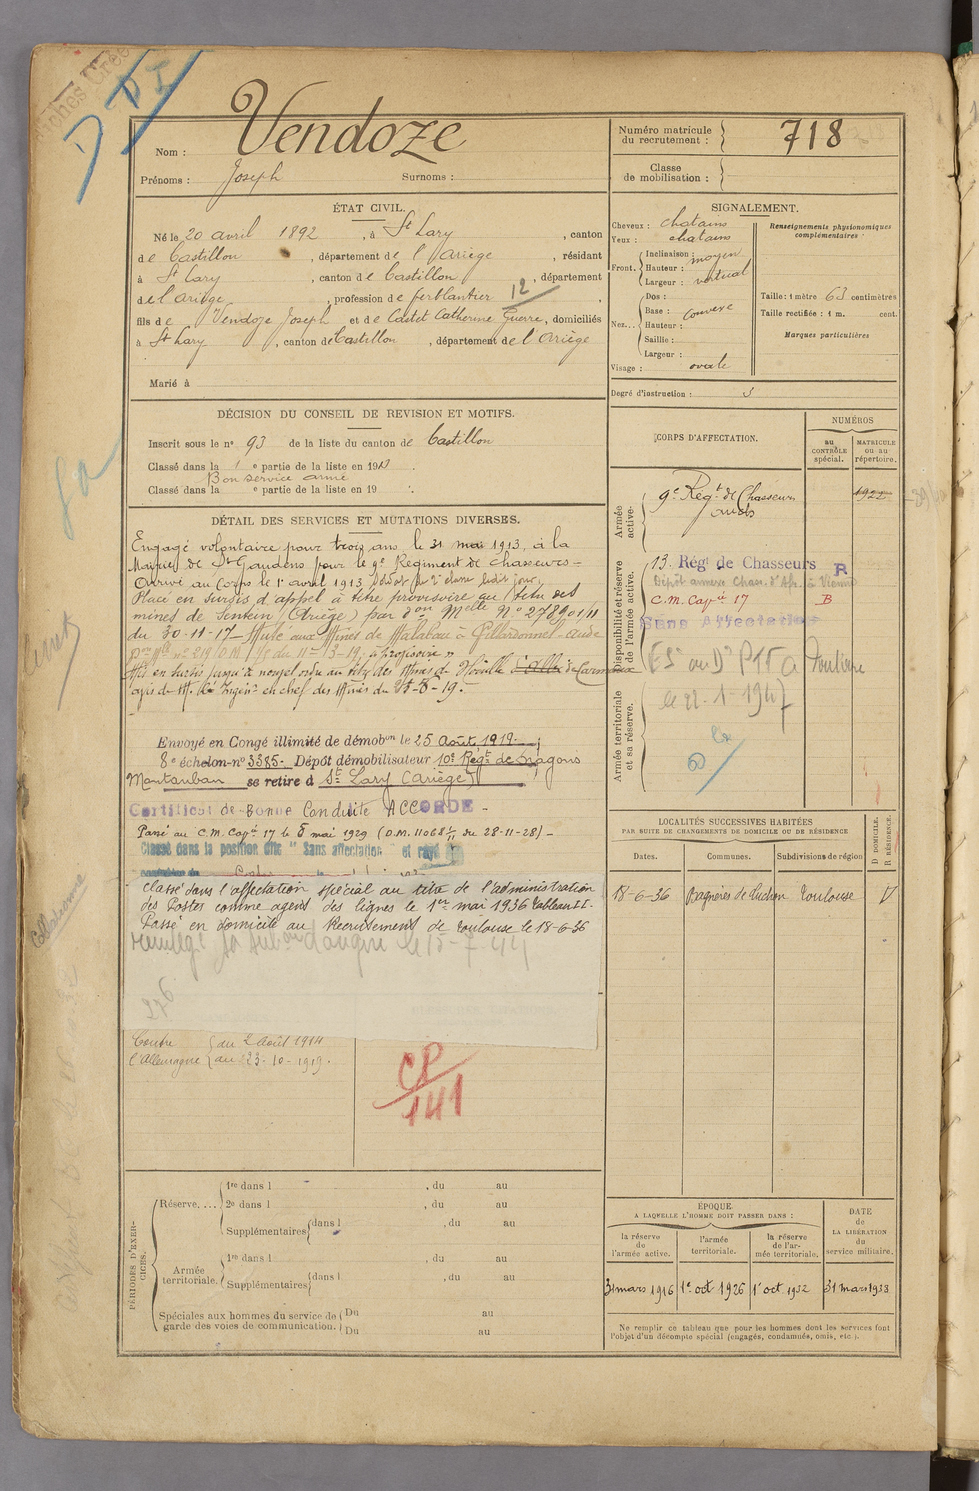 D D I
Nom : Vendoze
Prénoms : Joseph Surnoms :
Numéro matricule du recrutement : 718
Classe de mobilisation :
ÉTAT CIVIL.
Né le 20 avril 1892, à St Lary, canton
de Castillon, département de l'Ariège, résidant
à St Lary, canton de Castillon, département
de l'ariège, profession de ferblantier 12,
fils de Vendoze Joseph et de Castet Catherine Guerre, domiciliés
à St Lary, canton de Castillon, département de l'Ariège
Marié à
SIGNALEMENT.
Cheveux : chatains
Yeux : chatains
Front. Inclinaison : moyen
Hauteur :
Largeur : vertical
Nez... Dos :
Base : convexe
Hauteur :
Saillie :
Largeur :
Visage : ovale
Renseignements physionomiques complémentaires :
Taille : 1 mètre 63 centimètres
Taille rectifiée : 1 m. cent.
Marques particulières
Degré d'instruction : 3
DÉCISION DU CONSEIL DE REVISION ET MOTIFS.
Inscrit sous le no 93 de la liste du canton de Castillon
Classé dans la 1 e partie de la liste en 1913.
Bon service armé
Classé dans la e partie de la liste en 19 .
DÉTAIL DES SERVICES ET MUTATIONS DIVERSES.
Engagé volontaire pour trois ans, le 31 mai 1913, à la
Mairie de St Gaudens pour le 9e Régiment de Chasseurs -
Arrivé au Corps le 1er avril 1913 soldat de 2e classe ledit jour.
Placé en sursis d'appel à titre provisoire au titre des
mines de Sentein (Ariège) par don Melle No 27890 1/11
du 30-11-17 - Muté aux Mines de Malabau à Villardonnel - Aude
Don Mlle no 219 O.M. du 11-3-19, à provisoire »
Mis en sursis jusqu'à nouvel ordre au titre des Mines de Houille de Carmaux
avis de M. Ingénr en chef des Mines du -5-19.
Envoyé en Congé illimité de démobon le 25 Août 1919 ;
8e échelon - no 3385 - Dépôt démobilisateur 10e Régt de Dragons
Montauban se retire à St Lary (Ariège)
Certificat de Bonne Conduite ACCORDE -
Passé au C.M. Capié 17 le 5 mai 1929 (O.M. 11068 1/11 du 28-11-28) -
Classé dans la position dite " Sans affectation " et rayé
classé dans l'affectation spécial au titre de l'administration
des Postes comme agent des lignes le 1er mai 1936 tableau II.
Passé en domicile au Recrutement de Toulouse le 18-6-36
Contre l'Allemagne du 2 Août 1914
au 23-10-1919.
CP/141
CORPS D'AFFECTATION.
NUMÉROS
au CONTRÔLE spécial.
MATRICULE ou au répertoire.
Armée active.
9e Régt de Chasseurs
1922
Disponibilité et réserve de l'armée active.
13. Régt de Chasseurs R
Dépôt annexe Chas. d'Af. à Vienne
C.M. Capié 17 B
Sans Affectation
Armée territoriale et sa réserve.
le 22-1-1947
LOCALITÉS SUCCESSIVES HABITÉES
PAR SUITE DE CHANGEMENTS DE DOMICILE OU DE RÉSIDENCE
Dates. Communes. Subdivisions de région D DOMICILE. R RÉSIDENCE.
18-6-36 Bagnères de Luchon Toulouse D
PÉRIODES D'EXERCICES.
Réserve.... 1re dans l , du au
2e dans l , du au
Supplémentaires dans l , du au
Armée territoriale. 1re dans l , du au
Supplémentaires dans l , du au
Spéciales aux hommes du service de garde des voies de communication. Du au
Du au
ÉPOQUE
A LAQUELLE L'HOMME DOIT PASSER DANS :
la réserve de l'armée active.
l'armée territoriale.
la réserve de l'armée territoriale.
DATE de LA LIBÉRATION du service militaire.
31 mars 1916 1er oct 1926 1er oct 1932 31 mars 1938
Ne remplir ce tableau que pour les hommes dont les services font
l'objet d'un décompte spécial (engagés, condamnés, omis, etc.).